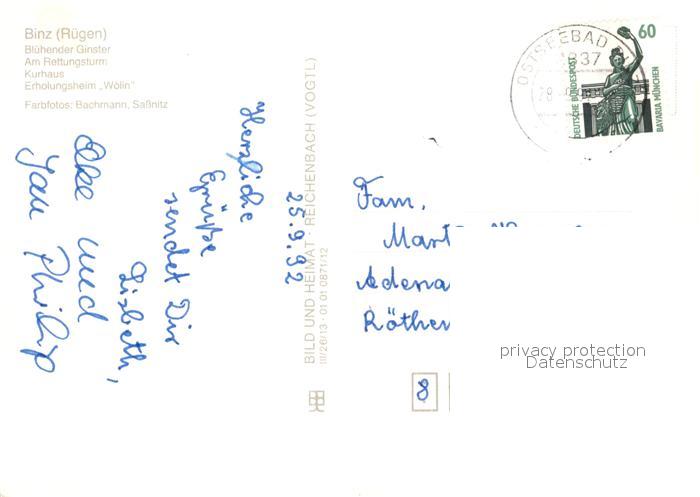 Binz (Rügen)
Blühender Ginster
Am Rettungsturm
Kurhaus
Erholungsheim „Wolin"
Farbfotos: Bachmann, Saßnitz
25.9.92
Herzliche
Grüße
sendet Dir
Lisbeth,
Elke und
Jan Philip
BILD UND HEIMAT · REICHENBACH (VOGTL)
III/26/13 · 01 01 0871/12
OSTSEEBAD
60
DEUTSCHE BUNDESPOST
BAVARIA MÜNCHEN
Fam.
Mart
Adena
Röther
8
privacy protection
Datenschutz